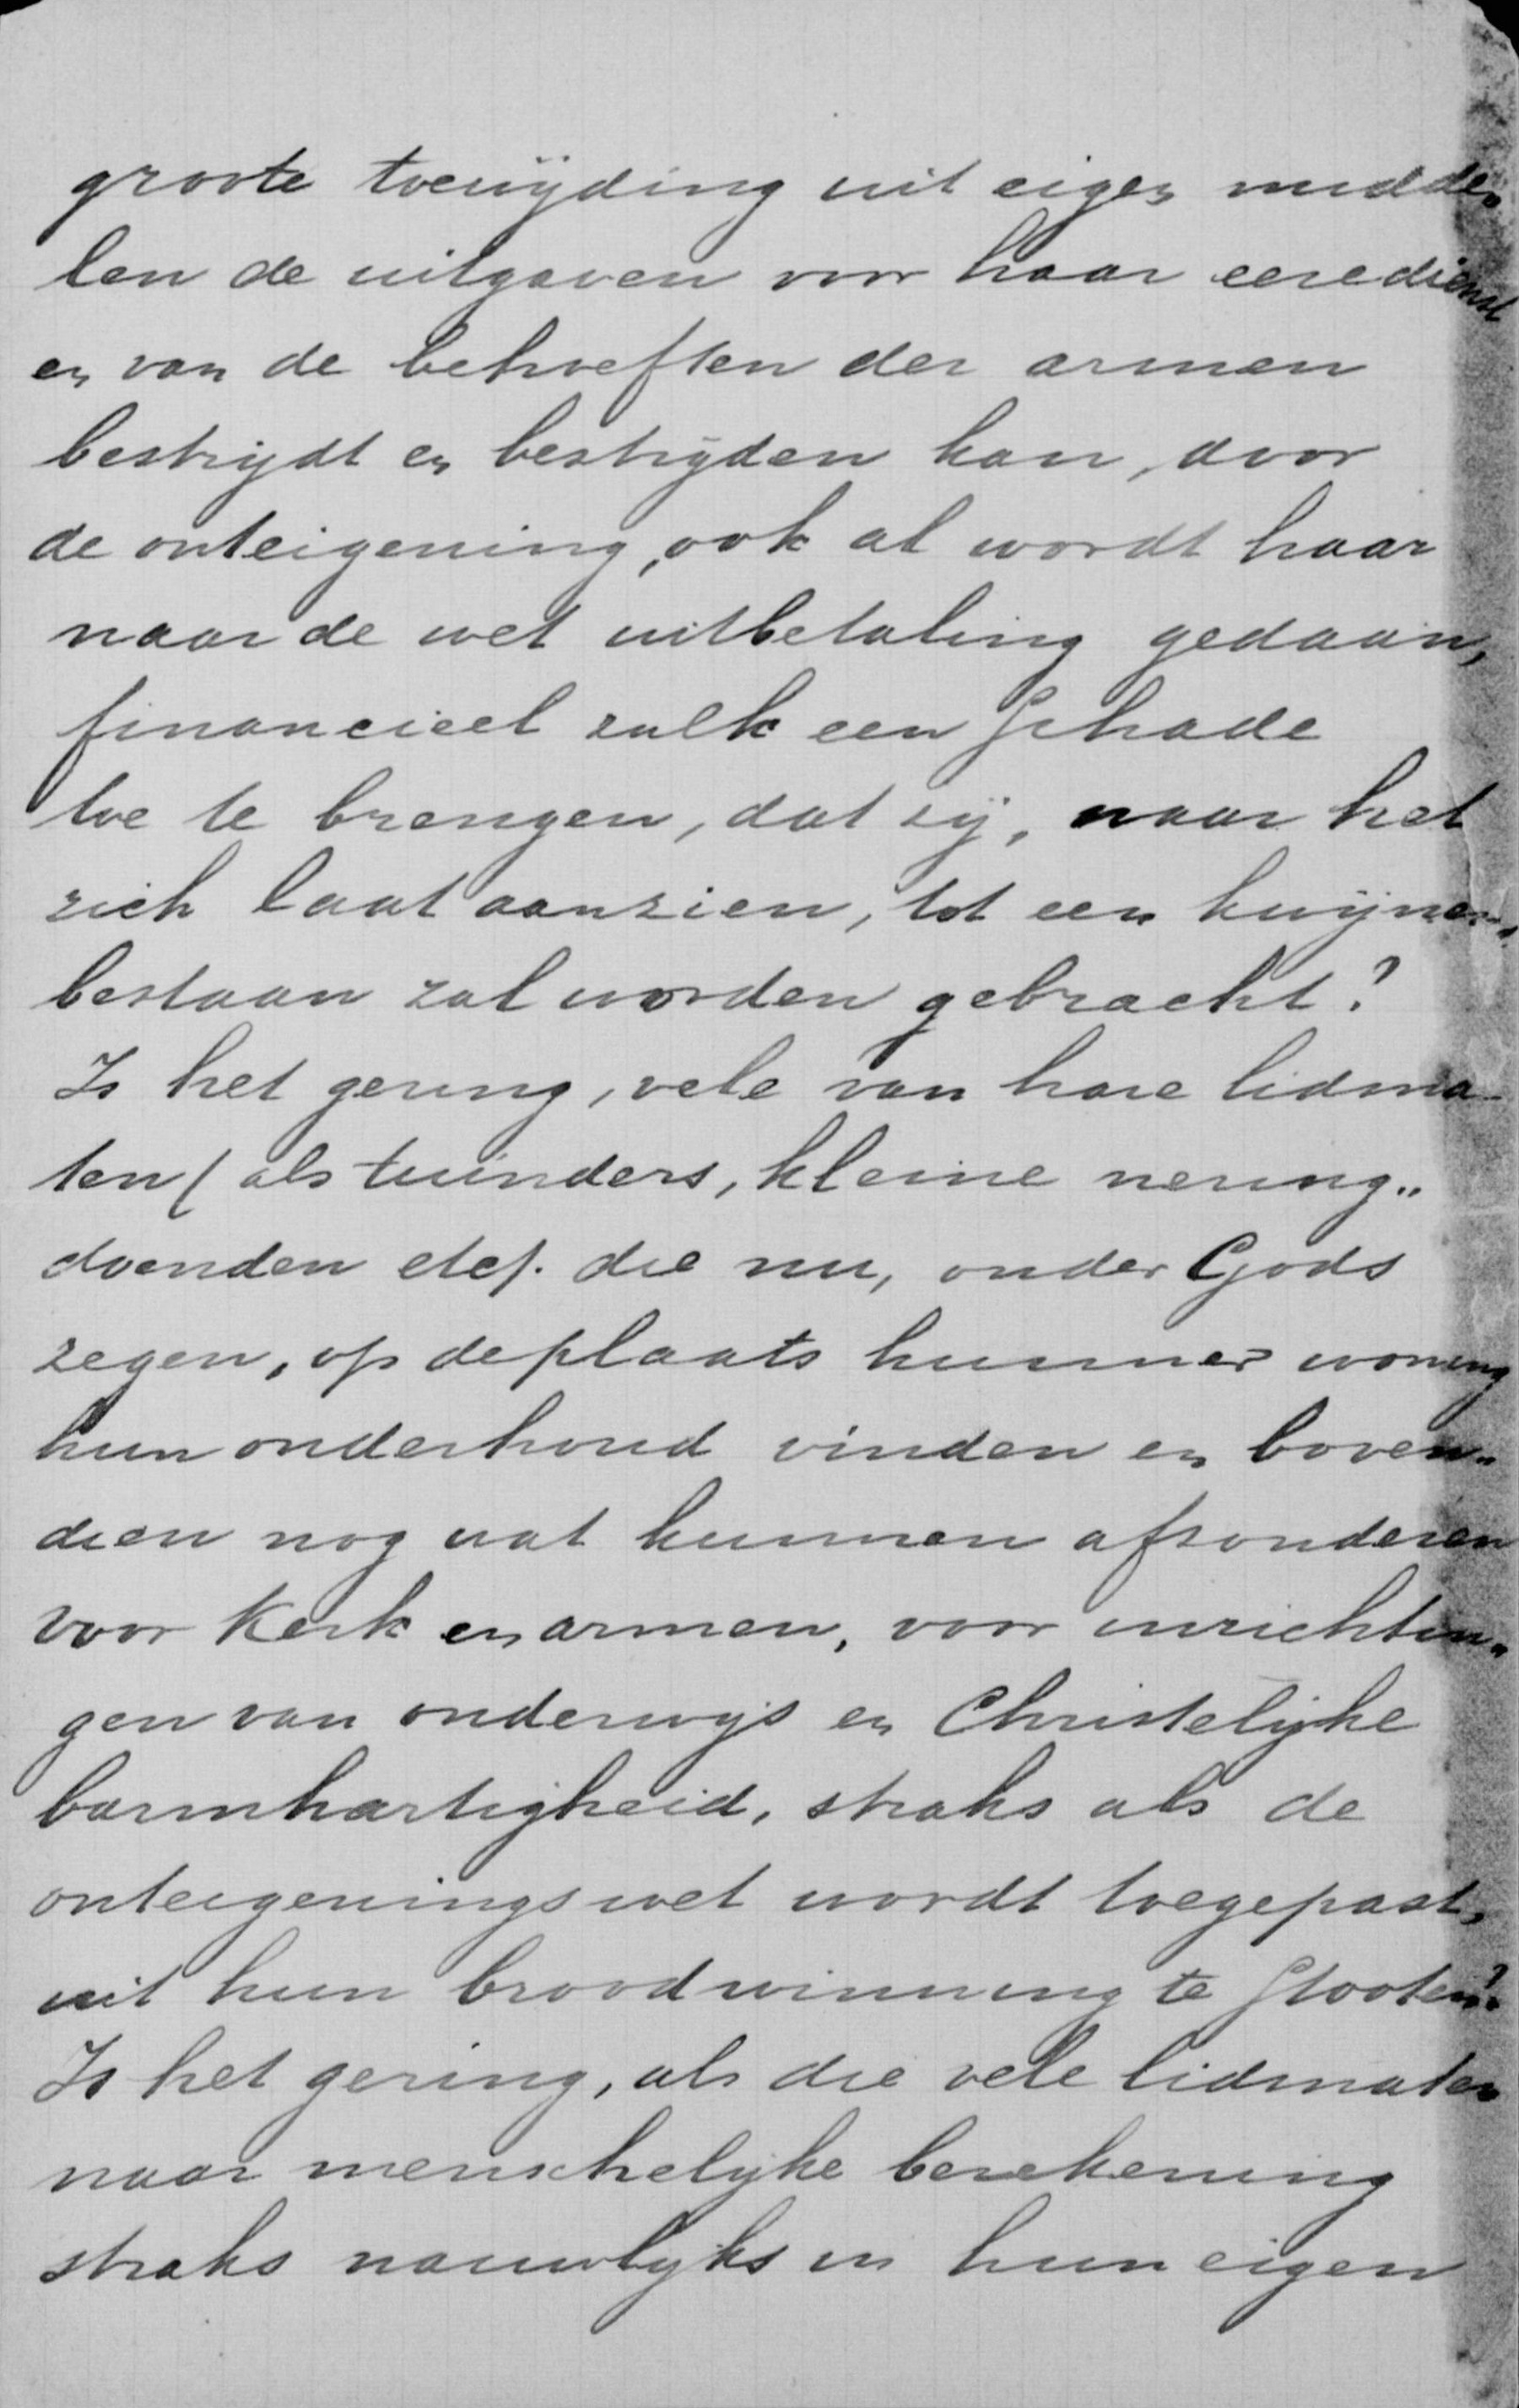 groote toewijding uit eigen midde„
len de uitgaven voor haar eeredienst
en van de behoeften der armen
bestrijdt en bestrijden kan, door
de onteigening, ook al wordt haar
naar de wet uitbetaling gedaan,
financieel zulk een schade
toe te brengen, dat zij, naar het
zich laat aanzien, tot een kwijnen„
bestaan zal worden gebracht?
Is het gering, vele van hare lidma-
ten (als tuinders, kleine nering„
doenden etc). die nu, onder Gods
zegen, op de plaats hunner woning
hun onderhoud vinden en boven„
dien nog wat kunnen afzonderen
voor Kerk en armen, voor inrichtin„
gen van onderwijs en Christelijke
barmhartigheid, straks als de
onteigeningswet wordt toegepast,
uit hun broodwinning te stooten?
Is het gering, als die vele lidmaten
naar menschelijke berekening
straks nauwlijks in hun eigen